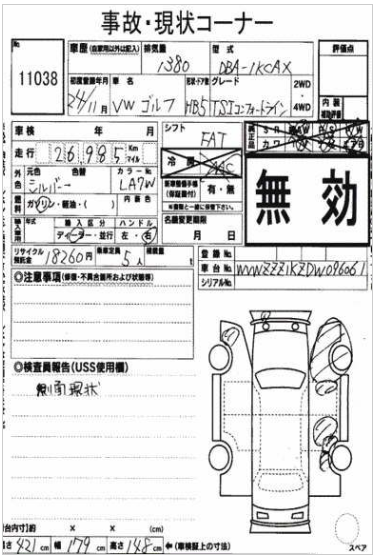 事故・現状コーナー
No. 11038
車歴(自家用以外は記入) 排気量 1380 型式 DBA-1KCAX 評価点
初度登録年月 24/11月 車名 VW ゴルフ 形状・ドア数 HB5 グレード TSIコンフォートライン 2WD・4WD
内装
車検 年 月 シフト FAT
走行 26,985 Km マイル 冷房 AAC
外色 元色 シルバー 色替 カラーNo. LA7W 有・無
燃料 ガソリン・軽油・( ) 内装色
名義変更期限 月 日
年式 輸入区分 ディーラー・並行 ハンドル 左・右
無効
リサイクル預託金 18260円 乗車定員 5人 積載量 t
登録No.
車台No. WVWZZZ1KZDW096061
シリアルNo.
◎注意事項(修復・不具合箇所および状態等)
◎検査員報告(USS使用欄)
現状
車台内寸(約) × × (cm)
長さ 421cm 幅 179cm 高さ 148cm ←(車検証上の寸法)
スペア